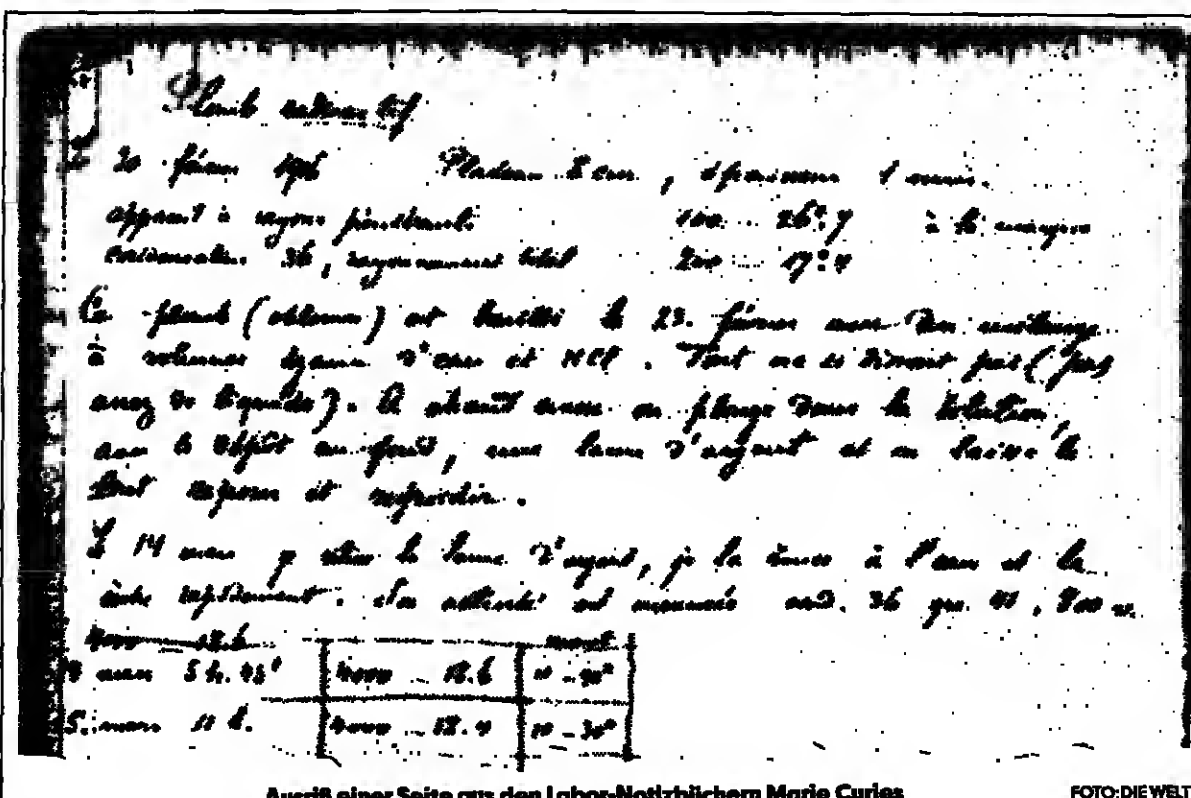 Plomb radioactif
20 février 1906 Plateau 8 cm, épaisseur 1
appareil à rayons pénétrants 100 26".7 à la marque
condensateur 36, rayonnement total 200 17".4
Ce plomb (obtenu) est le 23. février avec un mélange
à volumes égaux d'eau et HCl. Tout ne se dissout pas (pas
assez de liquide). A chaud encore on plonge dans la solution,
avec le dépôt au fond, une lame d'argent et on laisse le
tout reposer et refroidir.
Le 14 mars je retire la lame d'argent, je la rince à l'eau et la
rapidement. Son activité est mesurée cond. 36 800 v.
4000 12.6
mars 5 h. 45' 4000 .. 12.6 10 -
5. mars 11 h. 4000 .. 12.4 10 - 30"
Ausriß einer Seite aus den Labor-Notizbüchern Marie Curies
FOTO: DIE WELT